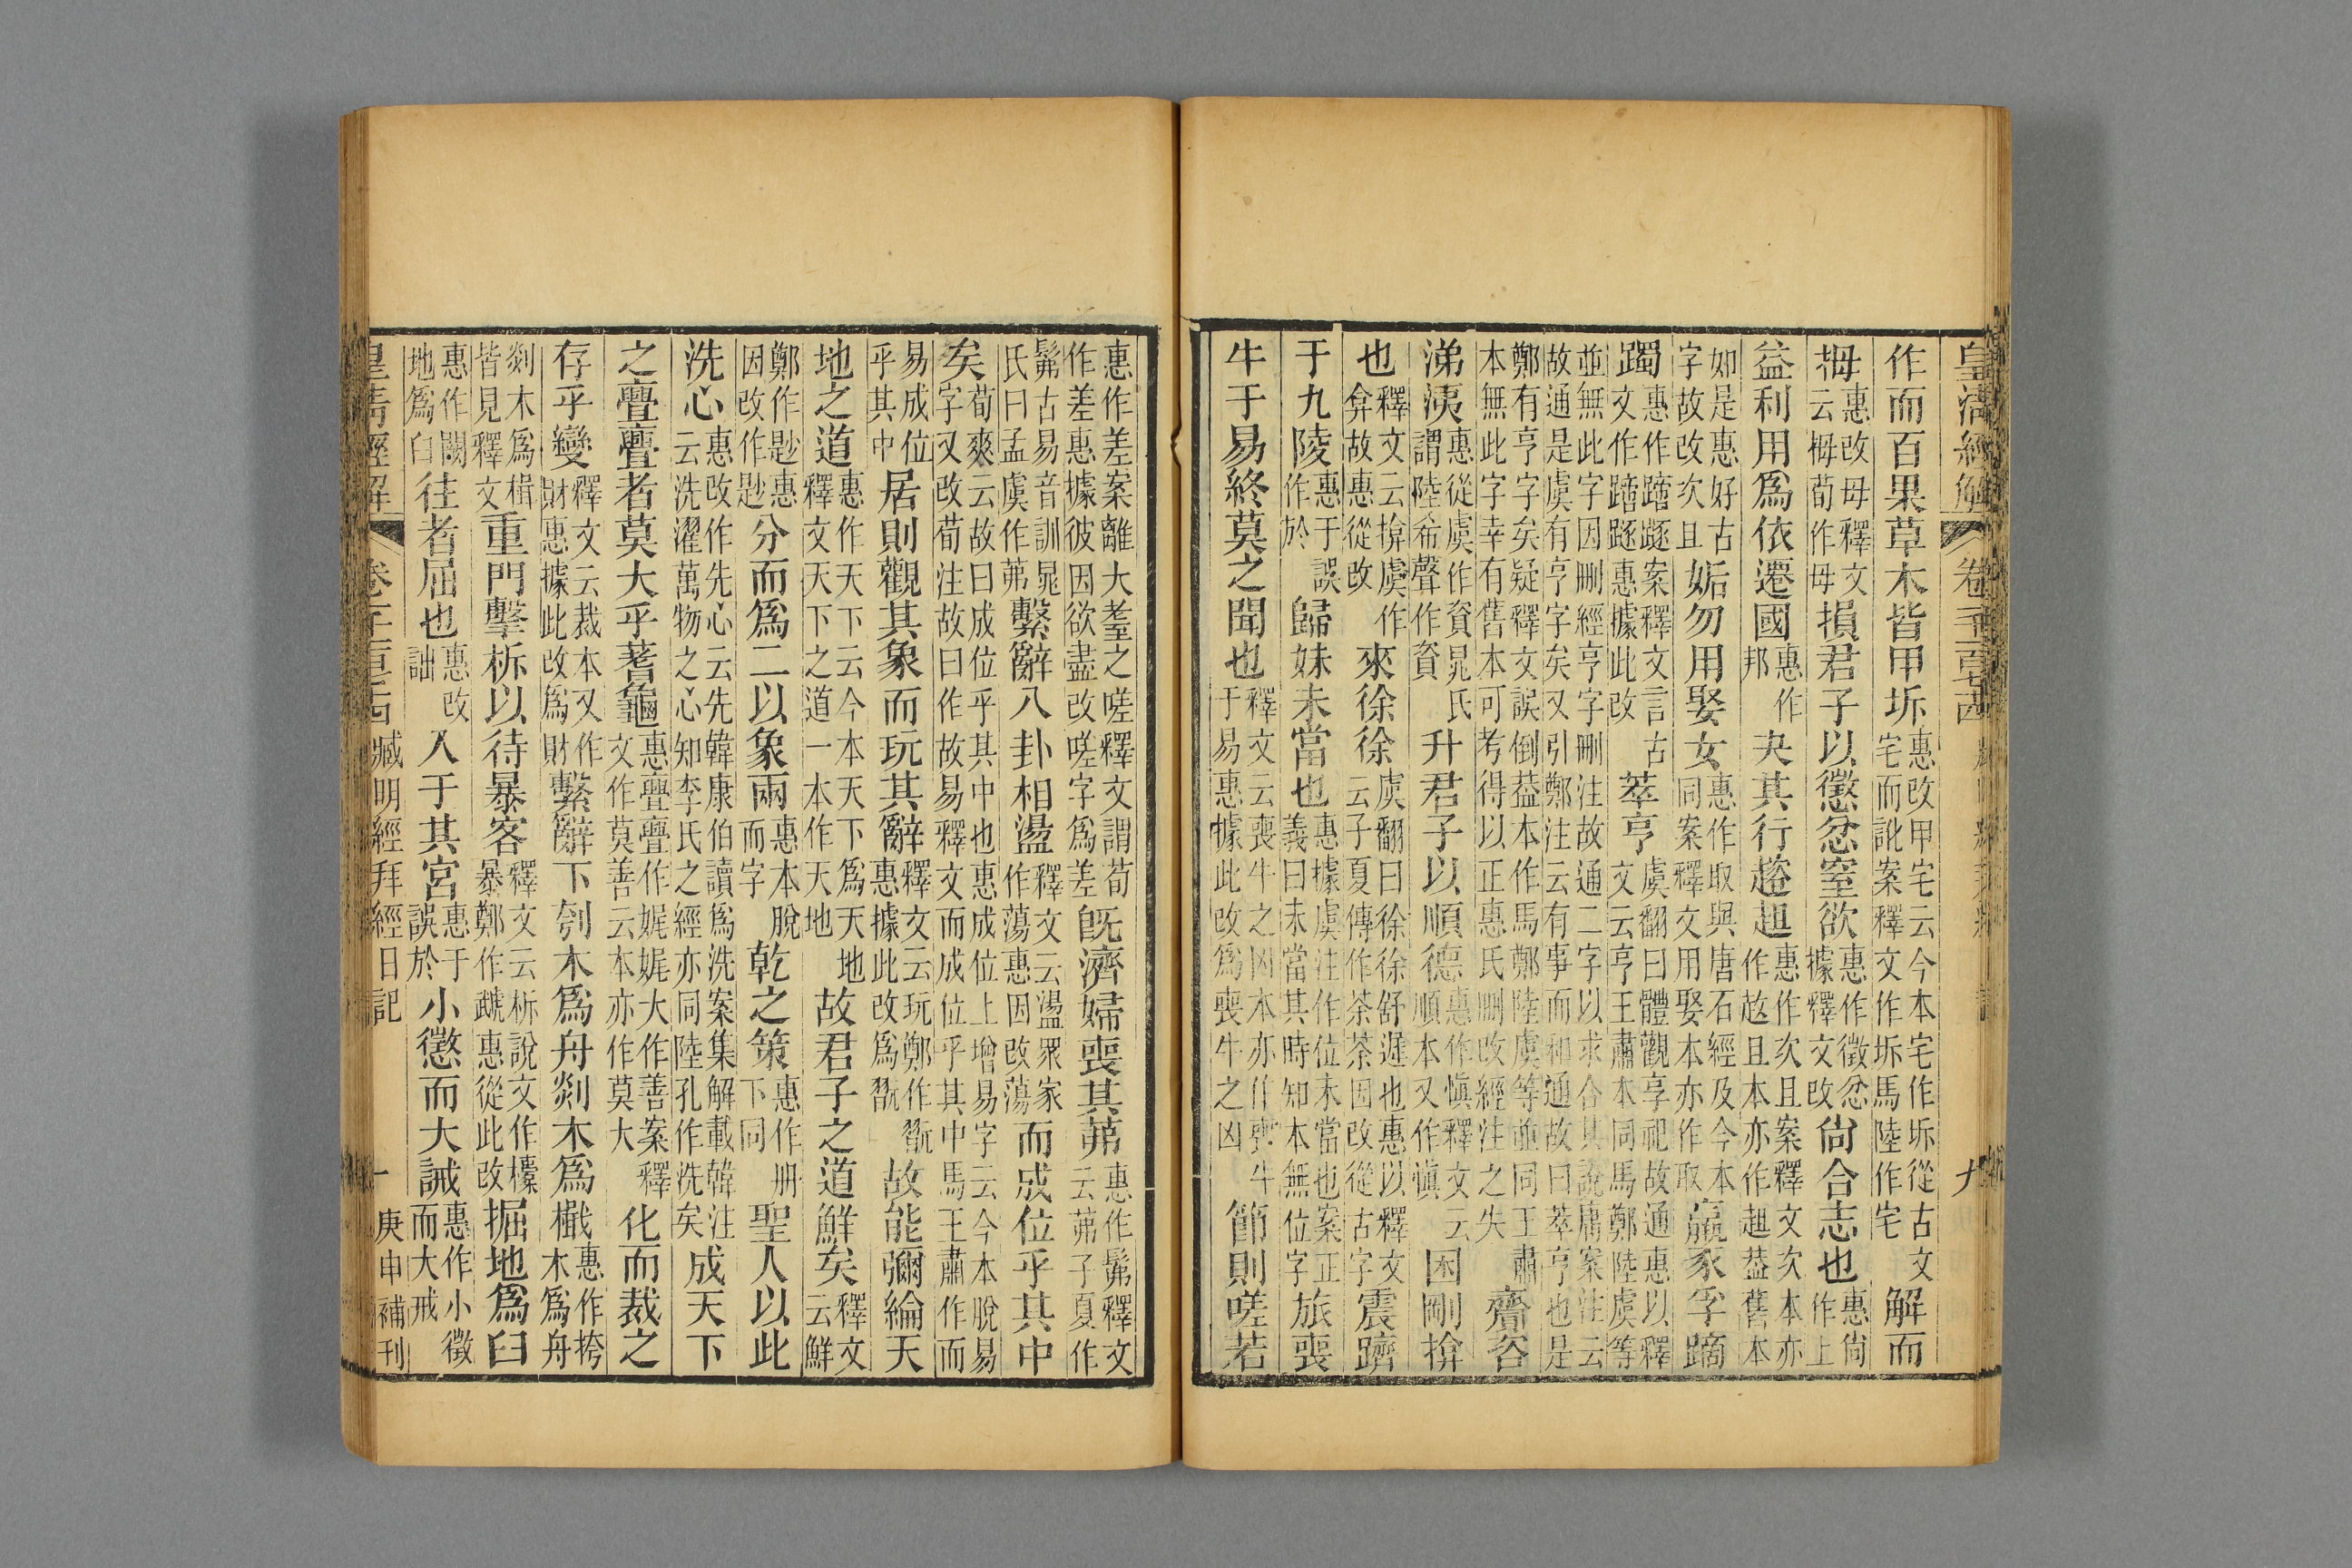 皇清經解 卷 九
作而百果草木皆甲坼惠改甲宅云今本宅作坼從古文宅而訛案釋文作坼馬陸作宅解而
拇惠改母釋文云拇荀作母損君子以懲忿窒欲惠作徵忿據釋文改尙合志也惠尙作上
益利用爲依遷國惠作邦夬其行趑趄惠作次且案釋文次本亦作趑且本亦作趄葢舊本
如是惠好古字故改次且姤勿用娶女惠作取與唐石經及今本同案釋文用娶本亦作取羸豕孚蹢
躅惠作蹢䠱案釋文言古文作蹢䠱惠據此改萃亨虞翻曰體觀享祀故通惠以釋文云亨王肅本同馬鄭陸虞等
並無此字因刪經亨字刪注故通二字以求合其說庸案注云故通是虞有亨字矣又引鄭注云有事而和通故曰萃亨也是
鄭有亨字矣疑釋文誤倒葢本作馬鄭陸虞等並同王肅本無此字幸有舊本可考得以正惠氏刪改經注之失齎咨
涕洟惠從虞作資晁氏謂陸希聲作資升君子以順德惠作慎釋文云順本又作慎困剛揜
也釋文云揜虞作弇故惠從改來徐徐虞翻曰徐徐舒遲也惠以釋文云子夏傳作荼荼因改從古字震躋
于九陵惠于誤作於歸妹未當也惠據虞注作位未當也案正義曰未當其時知本無位字旅喪
牛于易終莫之聞也釋文云喪牛之凶本亦作喪牛于易惠據此改爲喪牛之凶節則嗟若
惠作差案離大耋之嗟釋文謂荀作差惠據彼因欲盡改嗟字爲差旣濟婦喪其茀惠作髴釋文云茀子夏作
髴古易音訓晁氏曰孟虞作茀繫辭八卦相盪釋文云盪眾家作蕩惠因改蕩而成位乎其中
矣荀爽云故曰成位乎其中也惠成位上增易字云今本脫易字又改荀注故曰作故易釋文而成位乎其中馬王肅作而
易成位乎其中居則觀其象而玩其辭釋文云玩鄭作翫惠據此改爲翫故能彌綸天
地之道惠作天下云今本天下爲天地釋文天下之道一本作天地故君子之道鮮矣釋文云鮮
鄭作尟惠因改作尟分而爲二以象兩惠本脫而字乾之策惠作册下同聖人以此
洗心惠改作先心云先韓康伯讀爲洗案集解載韓注云洗濯萬物之心知李氏之經亦同陸孔作洗矣成天下
之亹亹者莫大乎蓍龜惠亹亹作娓娓大作善案釋文作莫善云本亦作莫大化而裁之
存乎變釋文云裁本又作財惠據此改爲財繫辭下刳木爲舟剡木爲檝惠作挎木爲舟
剡木爲楫皆見釋文重門擊柝以待暴客釋文云柝說文作㯓暴鄭作虣惠從此改掘地爲臼
惠作闕地爲臼往者屈也惠改詘入于其宮惠于誤於小懲而大誡惠作小徵而大戒
皇清經解 卷一千一百七十四 臧明經拜經日記 庚申補刊